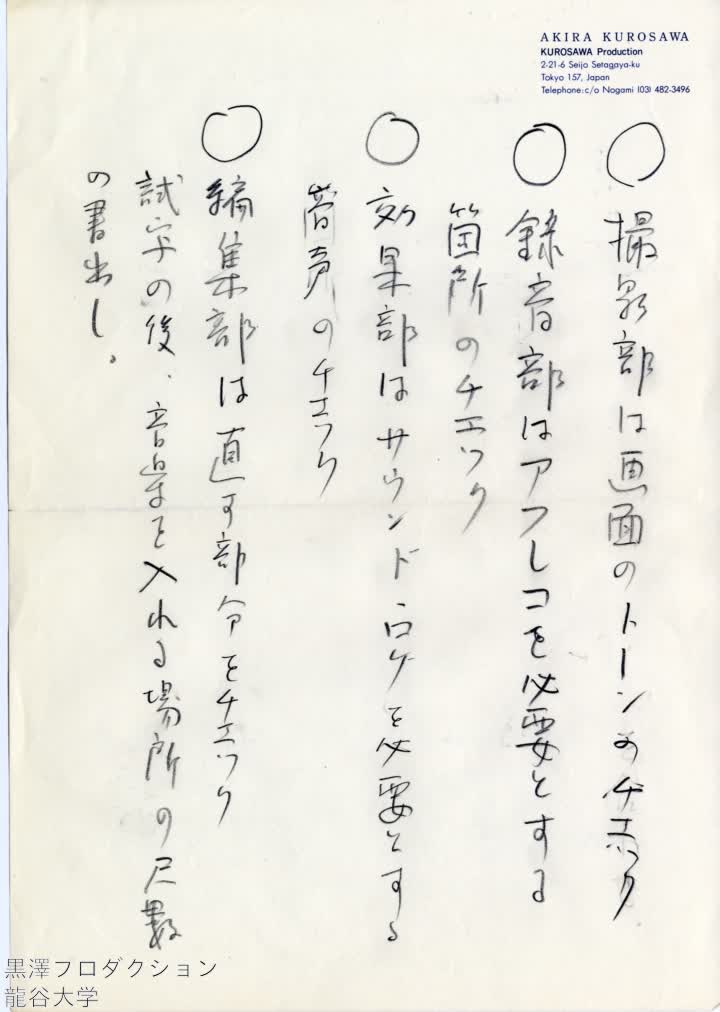 AKIRA KUROSAWA
KUROSAWA Production
2-21-6 Seijo Setagaya-ku
Tokyo 157, Japan
Telephone:c/o Nogami (03) 482-3496
○撮影部は画面のトーンのチェック
○録音部はアフレコを必要とする
箇所のチエック
○効果部はサウンドロケを必要とする
音声のチエック
○編集部は直す部分をチエック
試写の後、音楽を入れる場所の尺数
の書出し。
黒澤プロダクション
龍谷大学